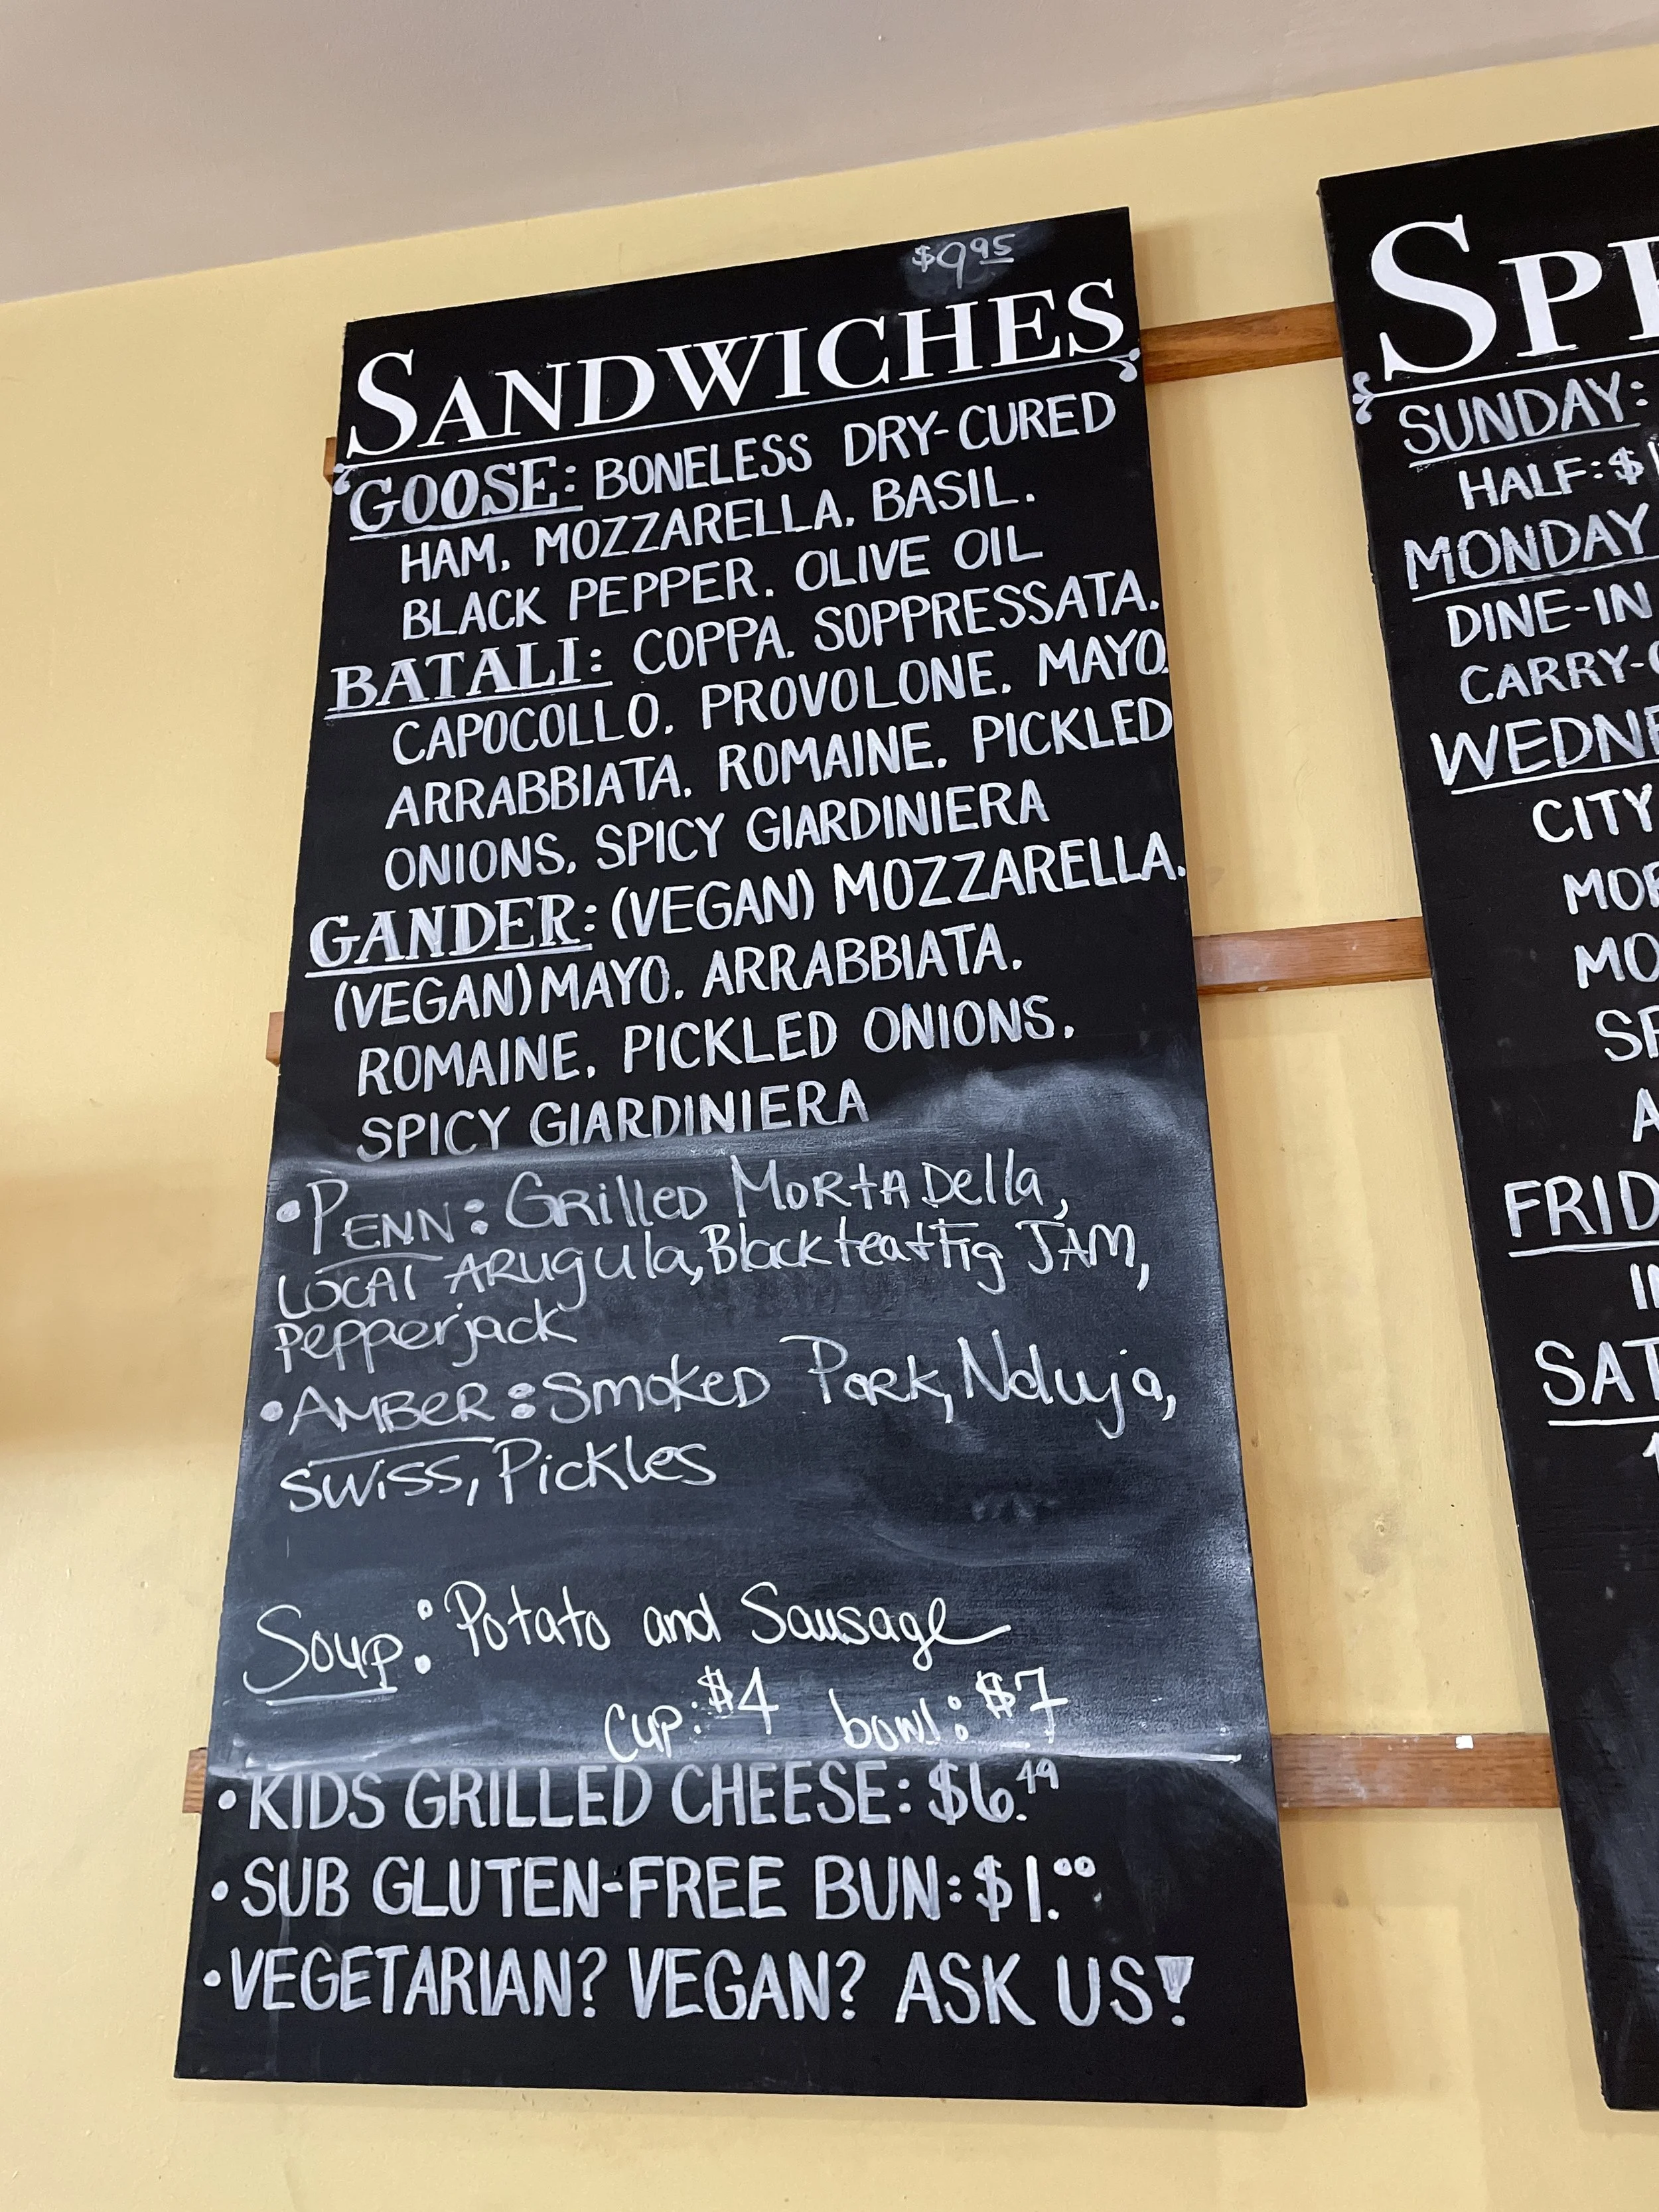 $9.95
SANDWICHES
GOOSE: BONELESS DRY-CURED
HAM, MOZZARELLA, BASIL,
BLACK PEPPER, OLIVE OIL
BATALI: COPPA, SOPPRESSATA,
CAPOCOLLO, PROVOLONE, MAYO,
ARRABBIATA, ROMAINE, PICKLED
ONIONS, SPICY GIARDINIERA
GANDER: (VEGAN) MOZZARELLA,
(VEGAN) MAYO, ARRABBIATA,
ROMAINE, PICKLED ONIONS,
SPICY GIARDINIERA
•PENN: GRilleD MORtADella,
LOCAl ARugula, Black tea + Fig JAM,
Pepperjack
•AMBER: SmOKED PORK, Nduja,
SWiSS, Pickles
Soup: Potato and Sausage
Cup: $4 bowl: $7
•KIDS GRILLED CHEESE: $6.49
•SUB GLUTEN-FREE BUN: $1.00
•VEGETARIAN? VEGAN? ASK US!
SUNDAY:
HALF: $
MONDAY
DINE-IN
CITY